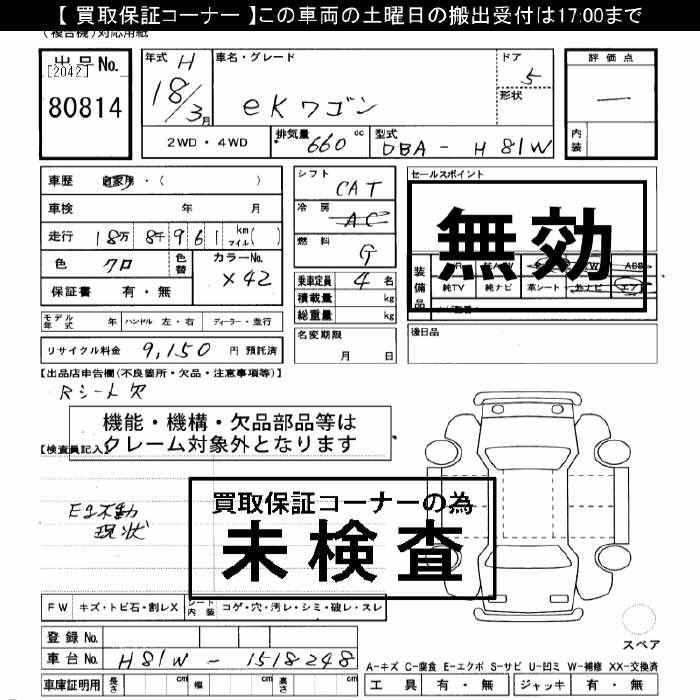 【 買取保証コーナー 】この車両の土曜日の搬出受付は17:00まで
(複合機)対応用紙
出品No.
[2042]
80814
年式 H
18/3月
車名・グレード
eKワゴン
ドア
5
形状
評価点
―
内装
2WD・4WD
排気量 660 cc
型式 DBA - H81W
車歴 自家用・( )
車検 年 月
走行 18万 8千 961 km マイル( )
色 クロ
色替
カラーNo.
X42
保証書 有・無
シフト
CAT
冷房
AC
燃料
G
乗車定員 4 名
積載量 kg
総重量 kg
セールスポイント
無効
装備品
ABS
純TV 純ナビ 革シート 外ナビ エア
モデル年式 年 ハンドル 左・右 ディーラー・並行
リサイクル料金 9,150 円 預託済
名変期限
月 日
後日品
【出品店申告欄(不良箇所・欠品・注意事項等)】
Rシート欠
機能・機構・欠品部品等は
クレーム対象外となります
【検査員記入】
Eg不動
現状
買取保証コーナーの為
未検査
FW キズ・トビ石・割レX シート内装 コゲ・穴・汚レ・シミ・破レ・スレ
登録 No.
車台 No. H81W - 1518248
車庫証明用 長さ cm 幅 cm 高さ cm
スペア
A-キズ C-腐食 E-エクボ S-サビ U-凹ミ W-補修 XX-交換済
工具 有・無 ジャッキ 有・無